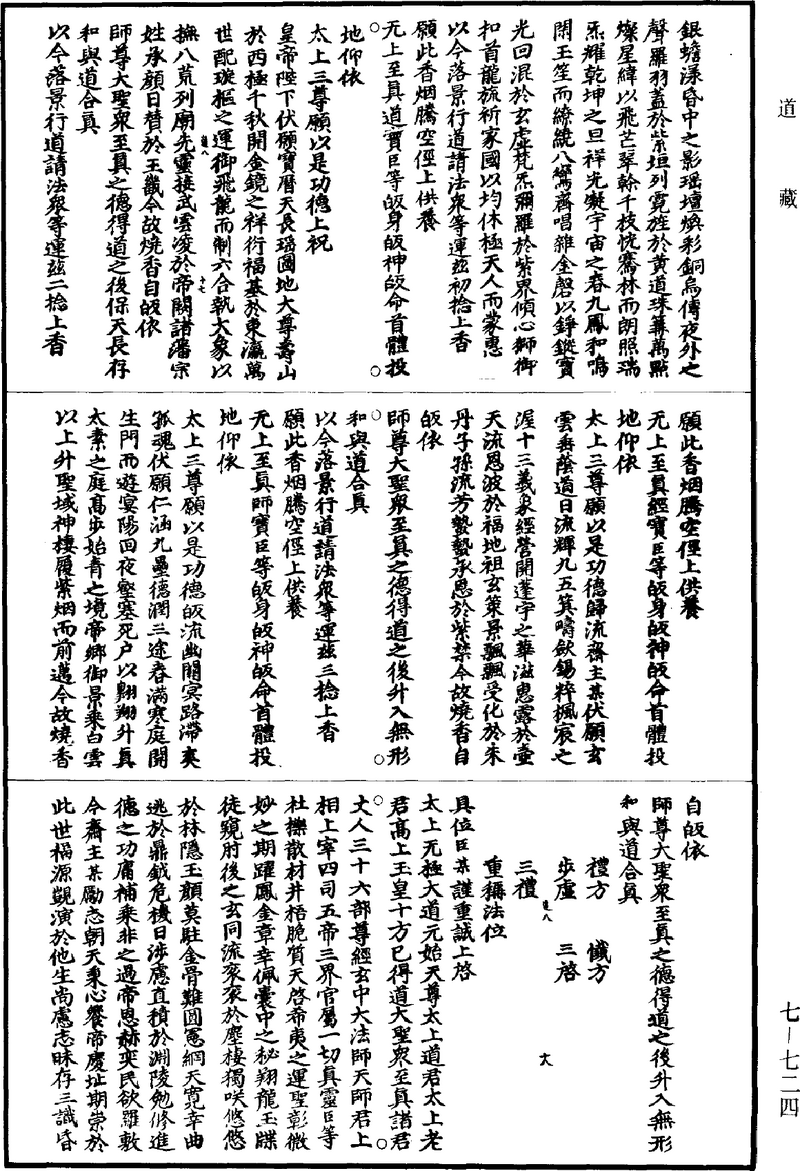 道藏
銀蟾漾昏中之影瑶壇煥彩銅烏傳夜外之
聲羅羽蓋於紫垣列霓旌於黄道珠幕萬點
燦星緯以飛芒翠榦千枝恍騫林而朗照瑞
炁耀乾坤之旦祥光凝宇宙之春九鳳和鳴
閱玉笙而繚繞八鸞齊唱雜金磬以錚鏦寳
光回混於玄虚梵炁彌羅於紫界傾心獅御
扣首龍旒祈家國以均休極天人而蒙惠
以今落景行道請法眾等運兹初捻上香
願此香烟騰空徑上供養
无上至真道寳臣等皈身皈神皈命首體投
地仰依
太上三尊願以是功德上祝
皇帝陛下伏願寳曆天長瑶圖地大尊壽山
於西極千秋開金鏡之祥衍福基於東瀛萬
世配璇樞之運御飛龍而制六合執大象以
撫八荒列廟先靈接武雲淩於帝闕諸潘宗
姓承顔日贊於王畿今故燒香自皈依
師尊大聖眾至真之德得道之後保天長存
和與道合真
以今落景行道請法眾等運兹二捻上香
願此香烟騰空徑上供養
无上至真經寳臣等皈身皈神皈命首體投
地仰依
太上三尊願以是功德歸流齋主某伏願玄
雲垂蔭道日流輝九五箕疇歛錫粹楓宸之
渥十三羲象經營開蓬宇之華滋惠露於壺
天流恩波於福地祖玄策景飄飄受化於朱
丹子孫流芳蟄蟄承恩於紫禁今故燒香自
皈依
師尊大聖眾至真之德得道之後升入無形
和與道合真
以今落景行道請法眾等運兹三捻上香
願此香烟騰空徑上供養
无上至真師寳臣等皈身皈神皈命首體投
地仰依
太上三尊願以是功德皈流幽關㝠路滯爽
孤魂伏願仁涵九壘德潤三途春滿寒庭開
生門而遊宴陽回夜壑塞死户以翺翔升真
太素之庭髙步始青之境帝鄉御景乘白雲
以上升聖域神棲履紫烟而前邁今故燒香
自皈依
師尊大聖眾至真之德得道之後升入無形
和與道合真
禮方 懴方
步虚 三啓
三禮
重稱法位
具位臣某謹重誠上啓
太上无極大道元始天尊太上道君太上老
君髙上玉皇十方已得道大聖眾至真諸君
丈人三十六部尊經玄中大法師天師君上
相上宰四司五帝三界官屬一切真靈臣等
社櫟散材井梧脆質天啓希夷之運聖彰微
妙之期躍鳳金章幸佩囊中之秘翔龍玉牒
徒窺肘後之玄同流衮衮於塵棲獨咲悠悠
於林隱玉顔莫駐金骨難圓憲網天寛幸曲
逃於鼎鉞危機日涉慮直積於淵陵勉修進
德之功庸補乘非之過帝恩赫奕民欲羅敷
今齋主某勵志朝天秉心饗帝慶址期崇於
此世福源觀演於他生尚慮志昧存三識昏
七－七二四